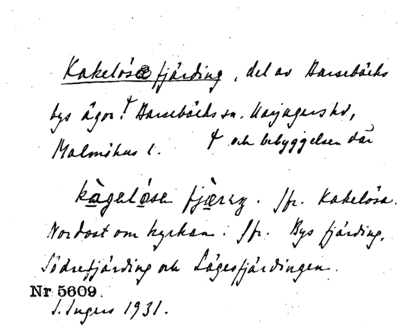 Kakelösa fjärding, del av Barsebäcks
bys ägor † Barsebäcks sn. Harjagers hd,
Malmöhus l. † och bebyggelsen där
kàgaløsa fjæreŋ. Jfr. Kakelösa.
Nordost om kyrkan. Jfr. Bys fjärding,
Södrefjärding och Lägesfjärdingen.
Nr 5609
I. Ingers 1931.